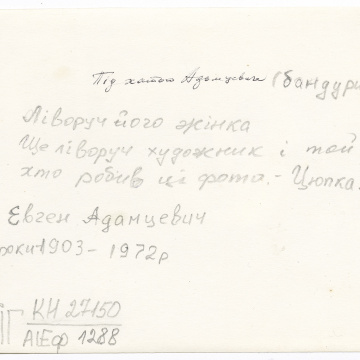 Під хатою Адамцевич (бандури
Ліворуч його жінка
Ще ліворуч художник і той
хто робив ці фото.- Цюпка.
Евген Адамцевич
роки 1903 - 1972р
КН 27150
АІЕФ 1288